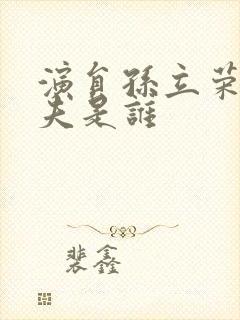 演員孫立荣
夫是誰
裴鑫